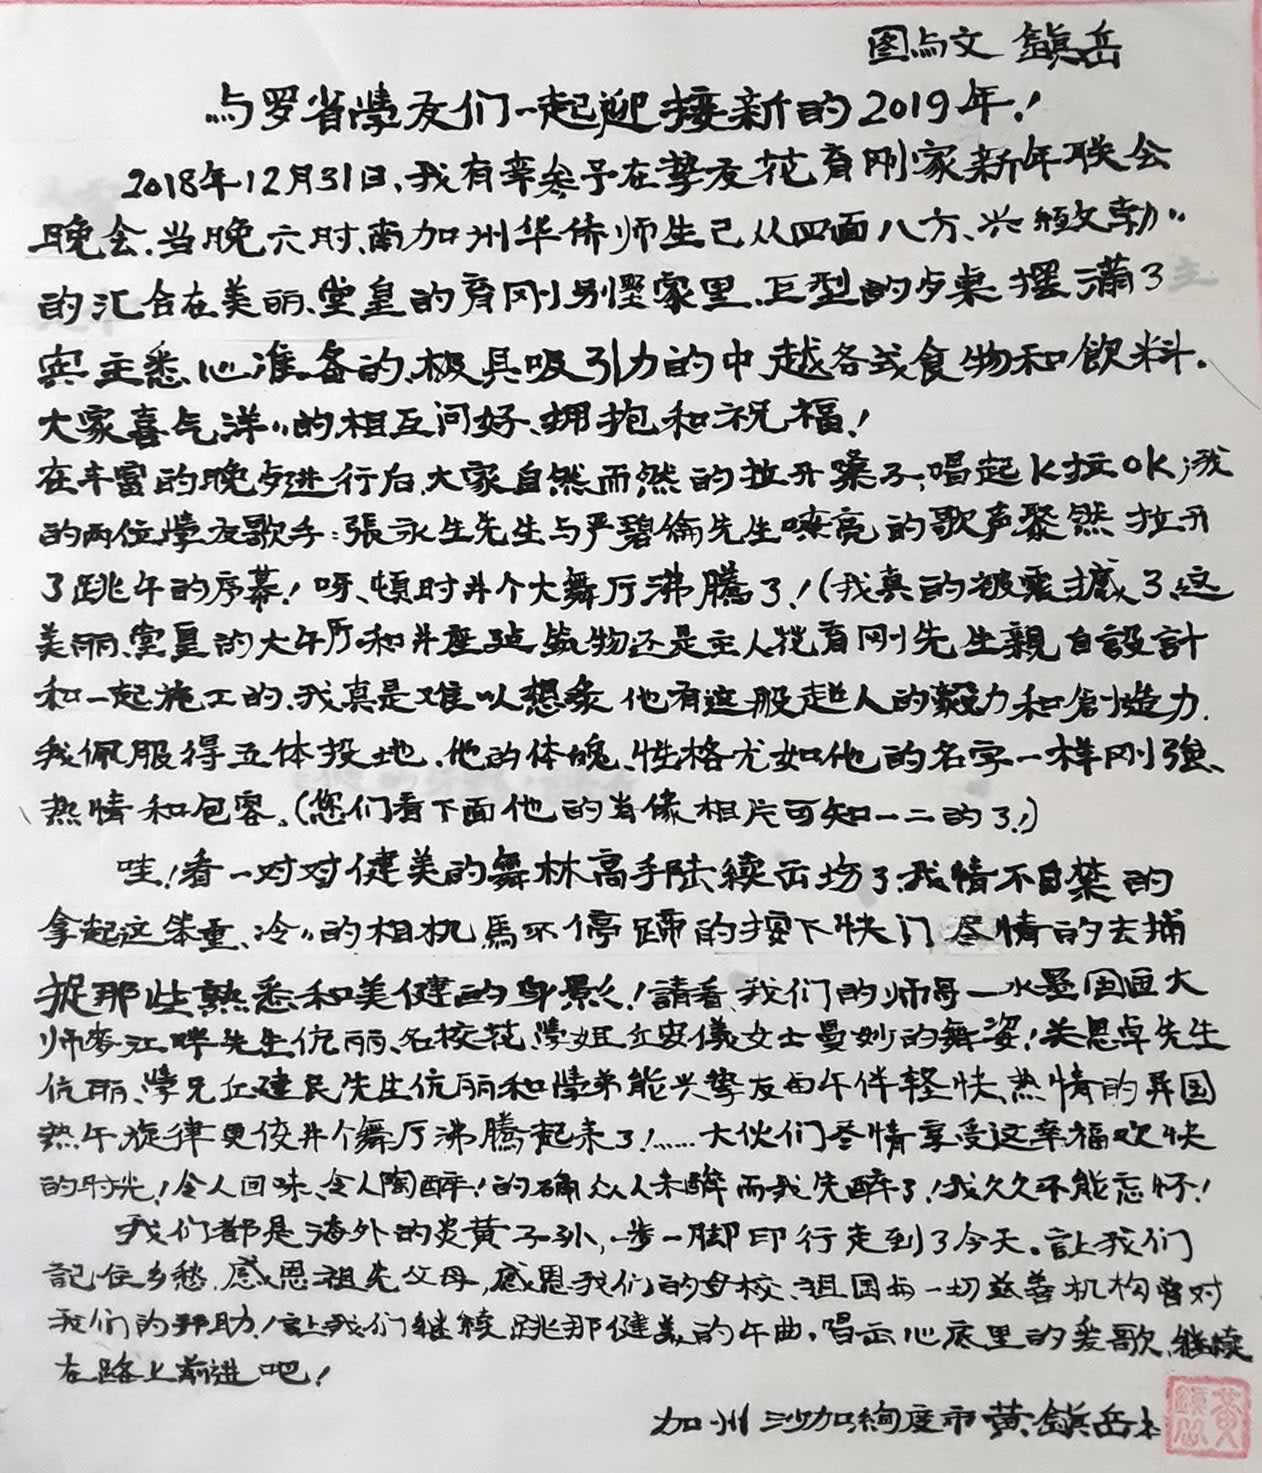 图与文 鎮岳
与罗省學友们一起迎接新的2019年!
2018年12月31日,我有幸参予在挚友花育刚家新年联会
晚会.当晚六时,南加州华侨师生已从四面八方、兴緻勃〃
的汇合在美丽、堂皇的育刚别墅家里.巨型的歺桌摆满了
宾主悉心准备的,极具吸引力的中越各式食物和飲料.
大家喜气洋〃的相互问好、拥抱和祝福!
在丰富的晚歺进行后,大家自然而然的拉开嗓子,唱起K拉OK;我
的两位學友歌手:張永生先生与严碧倫先生嘹亮的歌声驟然拉开
了跳午的序幕!呀、頓时丼个大舞厅沸騰了!(我真的被震撼了,这
美丽、堂皇的大午厅和丼座建筑物还是主人花育刚先生親自設計
和一起施工的.我真是难以想象他有这股超人的毅力和創造力.
我佩服得五体投地.他的体魄、性格尤如他的名字一样刚強、
热情和包容。(您们看下面他的肖像相片可知一二的了!)
哇!看一对对健美的舞林高手陆續击场了.我情不自禁的
拿起这笨重、冷〃的相机馬不停蹄的按下快门尽情的去捕
捉那些熟悉和美健的身影!請看,我们的师哥一水墨国画大
师麥江畔先生伉丽、名校花、學姐丘安儀女士曼妙的舞姿!关恩卓先生
伉丽、學兄丘建民先生伉丽和情弟能兴挚友由午伴轻快、热情的异国
热午旋律更佼丼个舞厅沸騰起来了!……大伙们尽情享受这幸福欢快
的时光!令人回味、令人陶醉!的确众人未醉而我先醉了!我久久不能忘怀!
我们都是海外的炎黄子孙,一步一脚印行走到了今天。讓我们
記住乡愁,感恩祖先父母,感恩我们的母校、祖国与一切慈善机构曾对
我们的帮助!讓我们继续跳那健美的午曲,唱击心底里的爱歌,继续
在路上前进吧!
加州沙加緬度市黄鎮岳
黄鎮岳